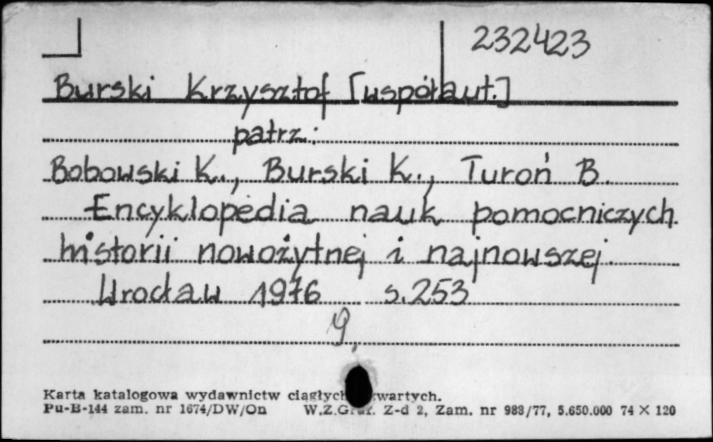 232423
Burski Krzysztof [współaut.]
patrz:
Bobowski K., Burski K., Turoń B.
Encyklopedia nauk pomocniczych
historii nowożytnej i najnowszej
Wrocław 1976 s. 253
9.
Karta katalogowa wydawnictw ciągłych
Pu-B-144 zam. nr 1674/DW/On W.Z.Graf. Z-d 2, Zam. nr 983/77, 5.650.000 74 × 120